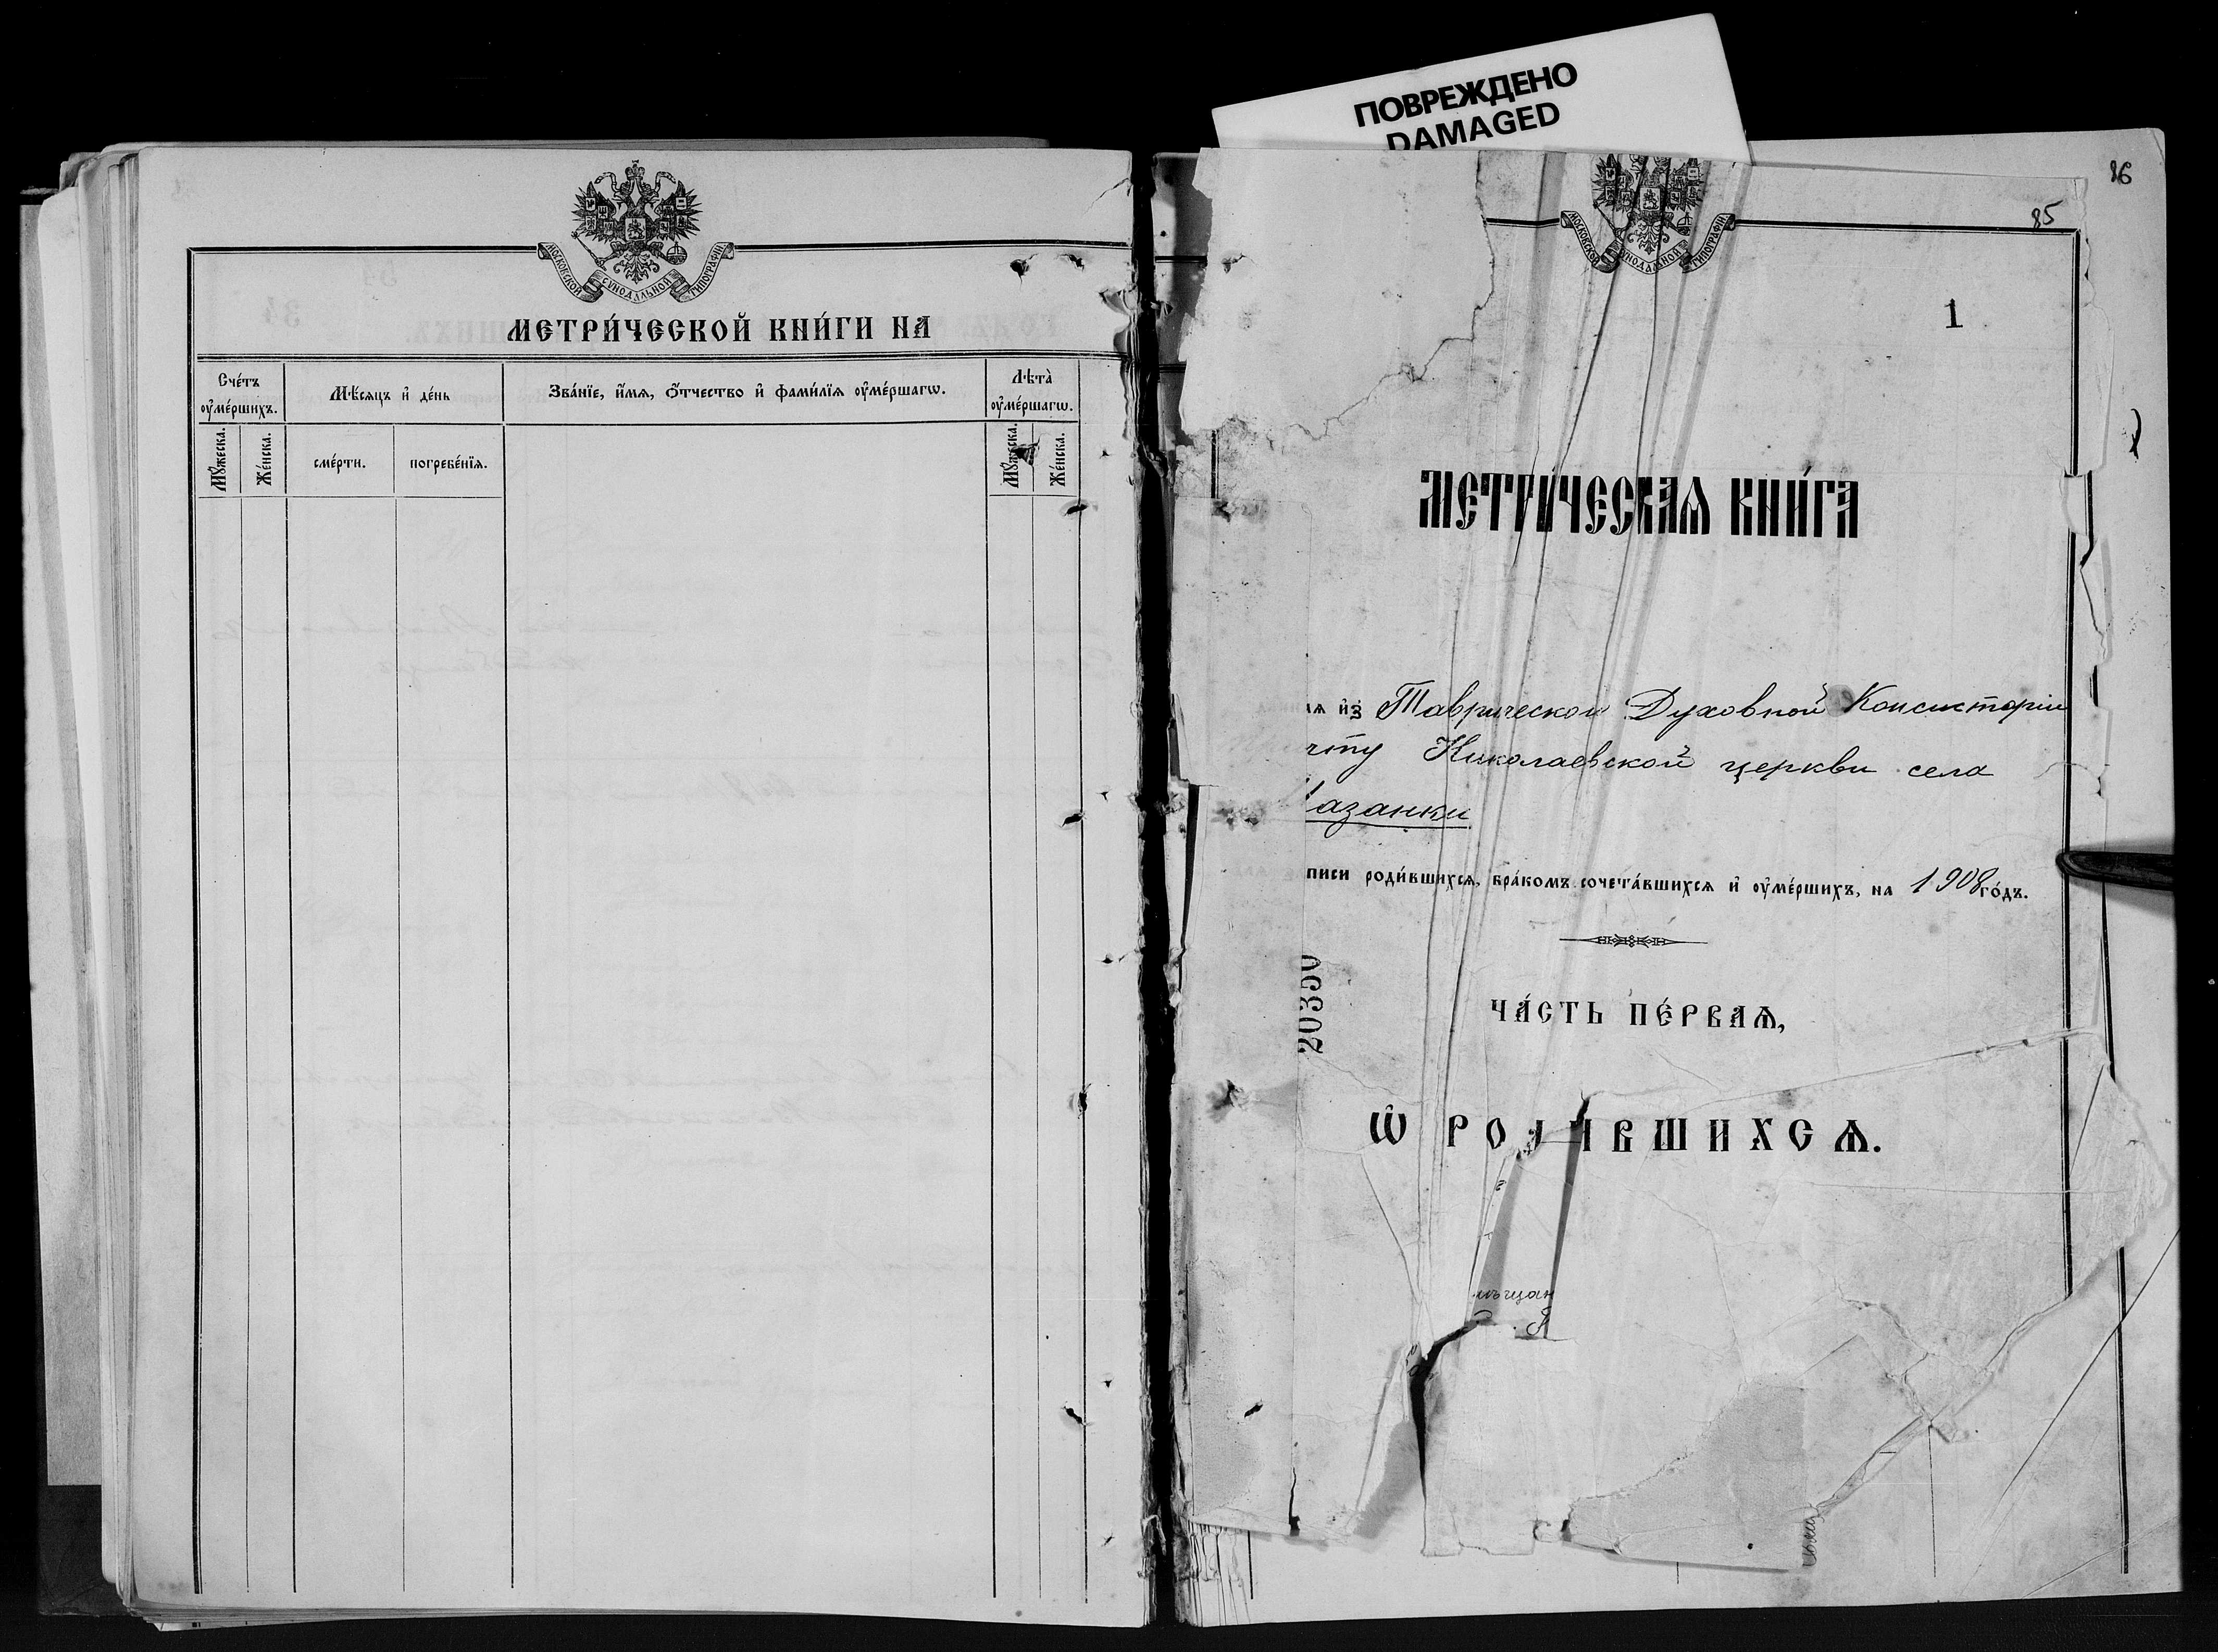 МОСКОВСКОЙ СѴНОДАЛЬНОЙ ТИПОГРАФІИ
МЕТРИ́ЧЕСКОЙ КНИ́ГИ НА
Сче́тъ оу҆ме́ршихъ.
Мѣ́сѧцъ и҆ де́нь
Зва́нїе, и҆́мѧ, ѻ҆́тчество и҆ фами́лїѧ оу҆ме́ршагѡ.
Лѣта̀ оу҆ме́ршагѡ.
Мꙋ́жеска.
Же́нска.
сме́рти.
погребе́нїѧ.
Мꙋ́жеска.
Же́нска.
ПОВРЕЖДЕНО
DAMAGED
86
85
МОСКОВСКОЙ СѴНОДАЛЬНОЙ ТИПОГРАФІИ
1
МЕТРИ́ЧЕСКАѦ КНИ́ГА
ѧ из Таврической Духовной Консисторіи
чту Николаевской церкви села
азанки
писи роди́вшихсѧ, бра́комъ сочета́вшихсѧ и҆ оу҆ме́ршихъ, на 1908 го́дъ.
20350
ЧА́СТЬ ПЕ́РВАѦ,
Ѡ҆ РОДИВШИХСѦ.
мѣщан